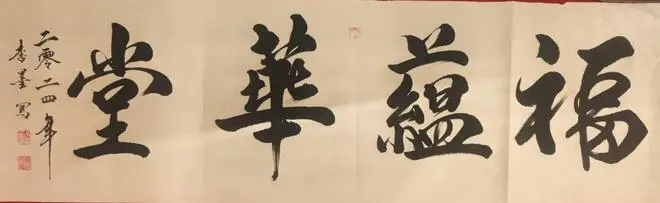 福蘊華堂
二零二四年
李墨寫